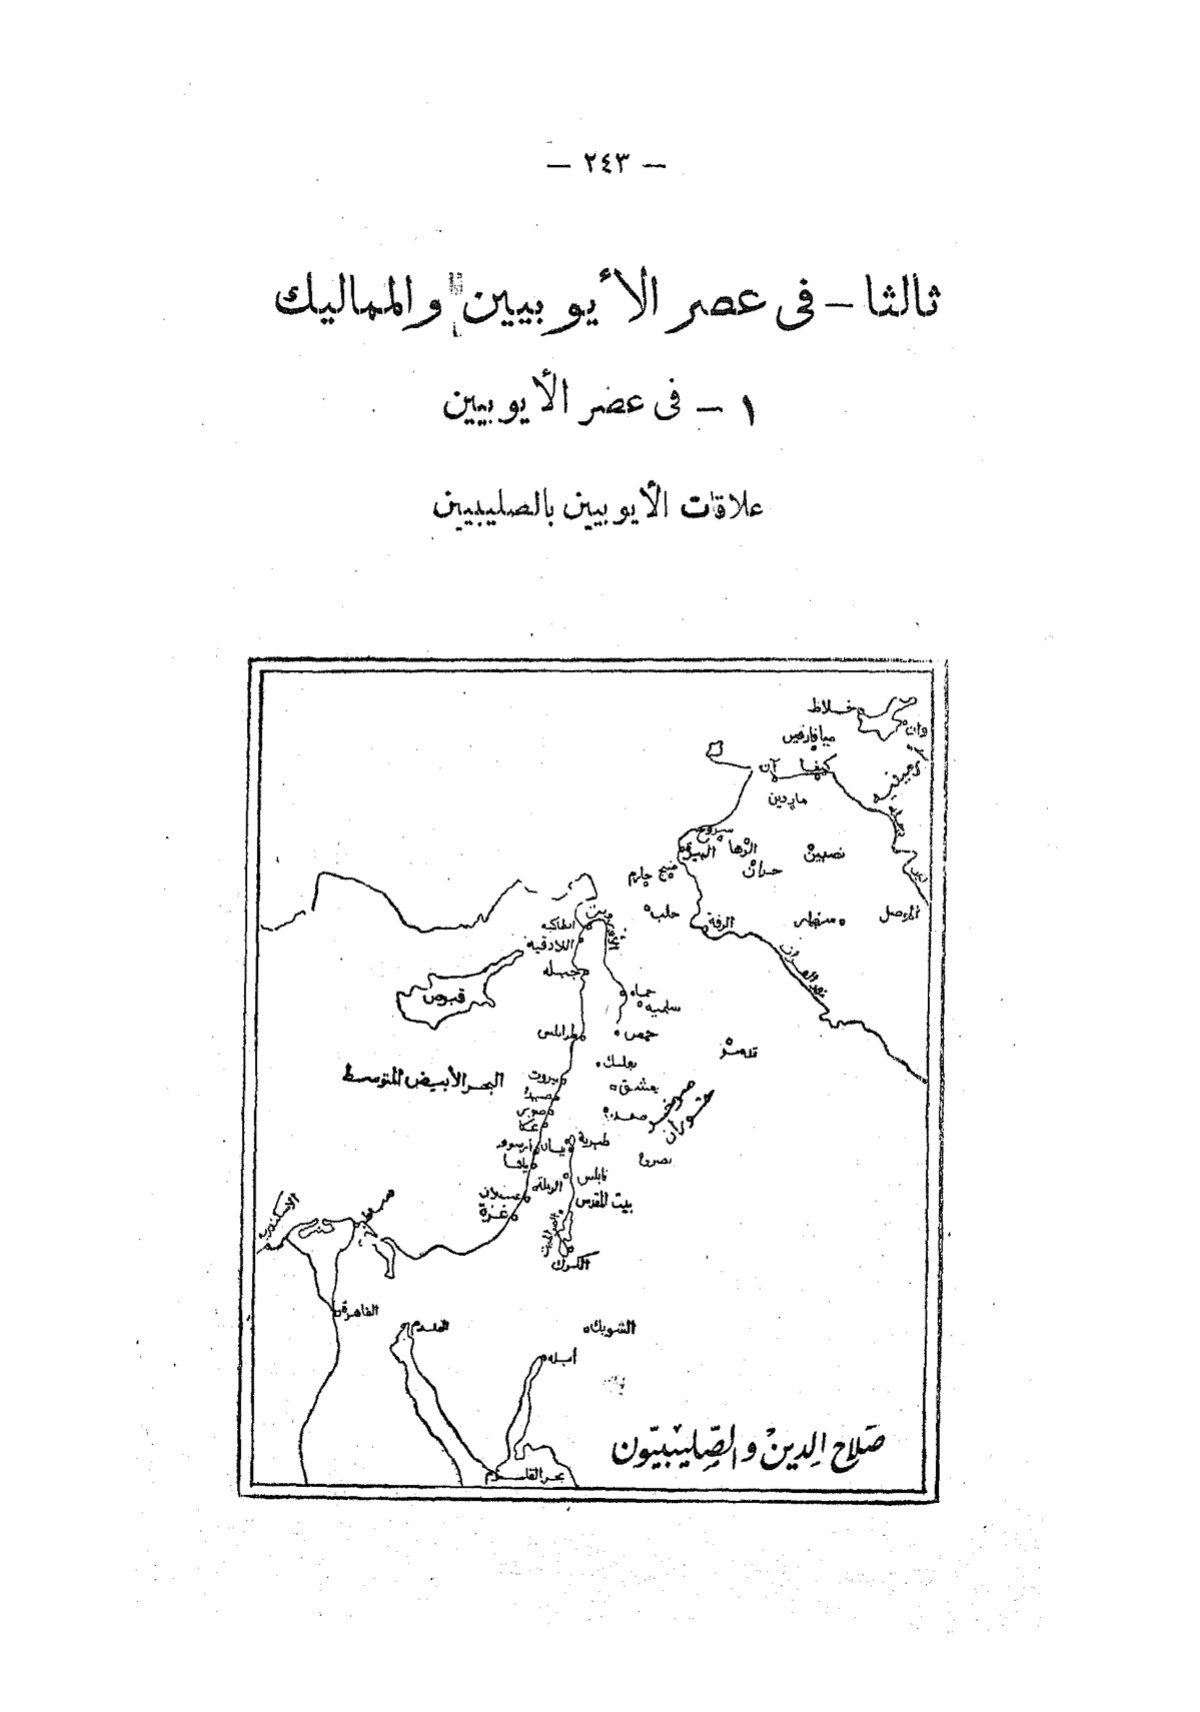 — ٢٤٣ —
ثالثا — فى عصر الأيوبيين والمماليك
١ — فى عصر الأيوبيين
علاقات الأيوبيين بالصليبيين
خلاط
وان
ميافارقين
كيفا
ماردين
سروج
الرها
البيرة
نصيبين
حران
منبج
حارم
حلب
الرقة
سنجار
الموصل
نهر الفرات
انطاكيه
اللاذقيه
جبله
قبرص
حماه
سلميه
طرابلس
حمص
تدمر
بعلبك
البحر الأبيض المتوسط
بيروت
دمشق
صيدا
صور
عكا
حوران
صرخد
طبرية
ارسوف
يافا
نابلس
الرملة
عسقلان
بيت المقدس
غزة
الكرك
الاسكندرية
دمياط
القاهرة
القلزم
الشوبك
أيله
بحر القلزم
صَلاح الدين والصَّليبيّون